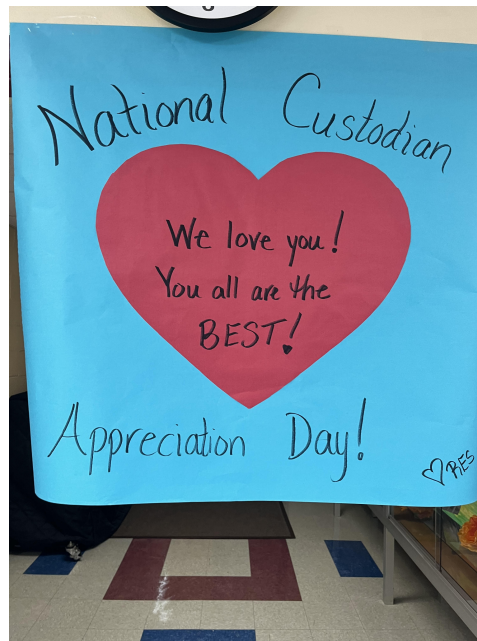 National Custodian
We love you!
You all are the
BEST!
Appreciation Day!
♡ RES